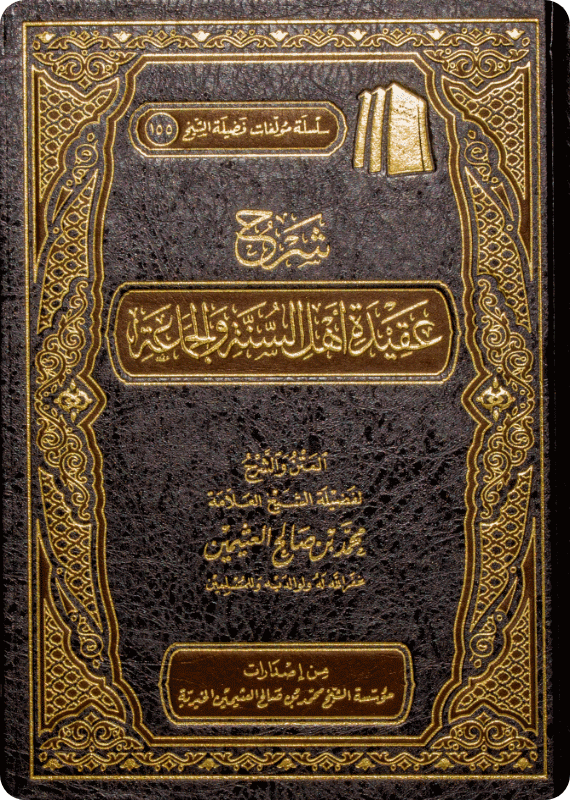 سلسلة مؤلفات فضيلة الشيخ ١٥٥
شَرْحُ
عَقِيْدَةِ أَهْلِ السُّنَّةِ وَالْجَمَاعَةِ
المَتْنُ وَالشَّرْحُ
لفَضِيْلَة الشَّيْخ العَلّامَة
محمّد بن صَالح العثيمين
غفر الله له ولوالديه وللمسلمين
مِن إصدَارات
مؤسسة الشيخ محمد بن صالح العثيمين الخيرية